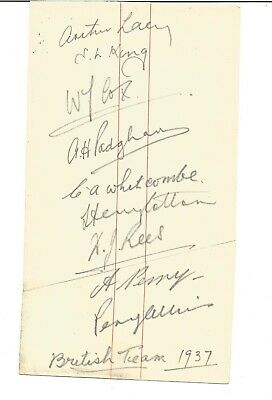 Arthur Lacey
S. L. King
W J Cox
A H Padgham
C A Whitcombe.
T Henry Cotton
D. J. Rees
A Perry
Percy Alliss
British Team 1937